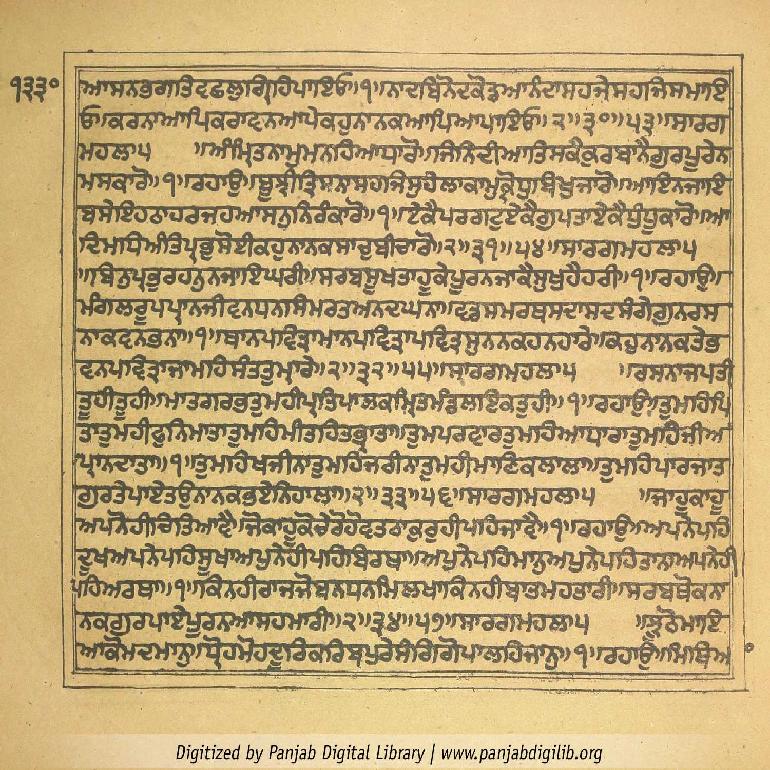 ੧੩੩੦
ਆਸਨਭਗਤਿਵਛਲੁਗ੍ਰਿਹਿਪਾਇਓ॥੧॥ਨਾਦਬਿਨੋਦਕੋਡਆਨੰਦਾਸਹਜੇਸਹਜਿਸਮਾਇ
ਓ॥ਕਰਨਾਆਪਿਕਰਾਵਨਆਪੇਕਹੁਨਾਨਕਆਪਿਆਪਾਇਓ॥੨॥੩੦॥੫੩॥ਸਾਰਗ
ਮਹਲਾ੫ ॥ਅੰਮ੍ਰਿਤਨਾਮੁਮਨਹਿਆਧਾਰੋ॥ਜਿਨਿਦੀਆਤਿਸਕੈਕੁਰਬਾਨੈਗੁਰਪੂਰੇਨ
ਮਸਕਾਰੋ॥੧॥ਰਹਾਉ॥ਬੂਝੀਤ੍ਰਿਸਨਾਸਹਜਿਸੁਹੇਲਾਕਾਮੁਕ੍ਰੋਧੁਬਿਖੁਜਾਰੋ॥ਆਇਨਜਾਇ
ਬਸੇਇਹਠਾਹਰਜਹਆਸਨੁਨਿਰੰਕਾਰੋ॥੧॥ਏਕੈਪਰਗਟੁਏਕੈਗੁਪਤਾਏਕੈਧੁੰਧੂਕਾਰੋ॥ਆ
ਦਿਮਧਿਅੰਤਿਪ੍ਰਭੁਸੋਈਕਹੁਨਾਨਕਸਾਚੁਬੀਚਾਰੋ॥੨॥੩੧॥੫੪॥ਸਾਰਗਮਹਲਾ੫
॥ਬਿਨੁਪ੍ਰਭੁਰਹਨੁਨਜਾਇਘਰੀ॥ਸਰਬਸੂਖਤਾਹੂਕੇਪੂਰਨਜਾਕੈਸੁਖੁਹੈਹਰੀ॥੧॥ਰਹਾਉ॥
ਮੰਗਲਰੂਪਪ੍ਰਾਨਜੀਵਨਧਨਸਿਮਰਤਅਨਦਘਨਾ॥ਵਡਸਮਰਥਸਦਾਸਦਸੰਗੇਗੁਨਰਸ
ਨਾਕਵਨਭਨਾ॥੧॥ਥਾਨਪਵਿਤ੍ਰਾਮਾਨਪਵਿਤ੍ਰਾਪਵਿਤ੍ਰਸੁਨਨਕਹਨਹਾਰੇ॥ਕਹੁਨਾਨਕਤੇਭ
ਵਨਪਵਿਤ੍ਰਾਜਾਮਹਿਸੰਤਤੁਮ੍ਹਾਰੇ॥੨॥੩੨॥੫੫॥ਸਾਰਗਮਹਲਾ੫ ॥ਰਸਨਾਜਪਤੀ
ਤੂਹੀਤੂਹੀ॥ਮਾਤਗਰਭਤੁਮਹੀਪ੍ਰਤਿਪਾਲਕਮ੍ਰਿਤਮੰਡਲਇਕਤੁਹੀ॥੧॥ਰਹਾਉ॥ਤੁਮਹਿਪਿ
ਤਾਤੁਮਹੀਫੁਨਿਮਾਤਾਤੁਮਹਿਮੀਤਹਿਤਭ੍ਰਾਤਾ॥ਤੁਮਪਰਵਾਰਤੁਮਹਿਆਧਾਰਾਤੁਮਹਿਜੀਅ
ਪ੍ਰਾਨਦਾਤਾ॥੧॥ਤੁਮਹਿਖਜੀਨਾਤੁਮਹਿਜਰੀਨਾਤੁਮਹੀਮਾਣਿਕਲਾਲਾ॥ਤੁਮਹਿਪਾਰਜਾਤ
ਗੁਰਤੇਪਾਏਤਉਨਾਨਕਭਏਨਿਹਾਲਾ॥੨॥੩੩॥੫੬॥ਸਾਰਗਮਹਲਾ੫ ॥ਜਾਹੂਕਾਹੂ
ਅਪਨੋਹੀਚਿਤਿਆਵੈ॥ਜੋਕਾਹੂਕੋਚੇਰੋਹੋਵਤਠਾਕੁਰਹੀਪਹਿਜਾਵੈ॥੧॥ਰਹਾਉ॥ਅਪਨੇਪਹਿ
ਦੂਖਅਪਨੇਪਹਿਸੂਖਾਅਪੁਨੇਹੀਪਹਿਬਿਰਥਾ॥ਅਪੁਨੇਪਹਿਮਾਨੁਅਪੁਨੇਪਹਿਤਾਨਾਅਪਨੇਹੀ
ਪਹਿਅਰਥਾ॥੧॥ਕਿਨਹੀਰਾਜਜੋਬਨਧਨਮਿਲਖਾਕਿਨਹੀਬਾਪਮਹਤਾਰੀ॥ਸਰਬਥੋਕਨਾ
ਨਕਗੁਰਪਾਏਪੂਰਨਆਸਹਮਾਰੀ॥੨॥੩੪॥੫੭॥ਸਾਰਗਮਹਲਾ੫ ॥ਝੂਠੋਮਾਇ
ਆਕੋਮਦਮਾਨੁ॥ਧ੍ਰੋਹਮੋਹਦੂਰਿਕਰਿਬਪੁਰੇਸੰਗਿਗੋਪਾਲਹਿਜਾਨੁ॥੧॥ਰਹਾਉ॥ਮਿਥਿਅ
Digitized by Panjab Digital Library | www.panjabdigilib.org